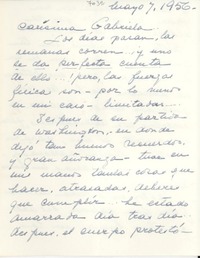 Mayo 7, 1956-
Carísima Gabriela-
Los días pasan, las
semanas corren y uno
se da perfecta cuenta
de ello - pero, las fuerzas
físicas son - por lo menos
en mi caso - limitadas.
Después de su partida
de Washington, en donde
dejó tan buenos recuerdos
y gran añoranza - tuve en
mis manos tantas cosas que
hacer, atrasadas, deberes
que cumplir - he estado
amarrada día tras día
después, el cuerpo protestó-